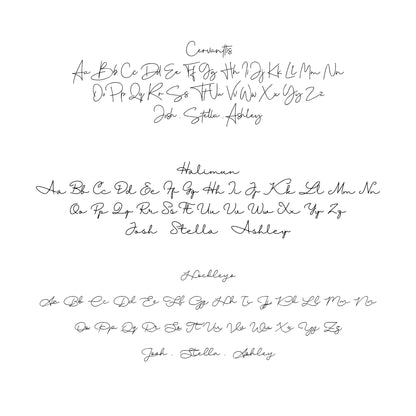 Cervanttis
Aa Bb Cc Dd Ee Ff Gg Hh Ii Jj Kk Ll Mm Nn
Oo Pp Qq Rr Ss Tt Uu Vv Ww Xx Yy Zz
Josh Stella Ashley
Halimun
Aa Bb Cc Dd Ee Ff Gg Hh Ii Jj Kk Ll Mm Nn
Oo Pp Qq Rr Ss Tt Uu Vv Ww Xx Yy Zz
Josh Stella Ashley
Hockleys
Aa Bb Cc Dd Ee Ff Gg Hh Ii Jj Kk Ll Mm Nn
Oo Pp Qq Rr Ss Tt Uu Vv Ww Xx Yy Zz
Josh . Stella . Ashley